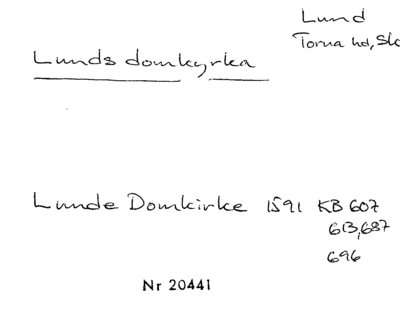 Lund
Torna hd, Sk
Lunds domkyrka
Lunde Domkirke 1591 KB 607
613,687
696
Nr 20441